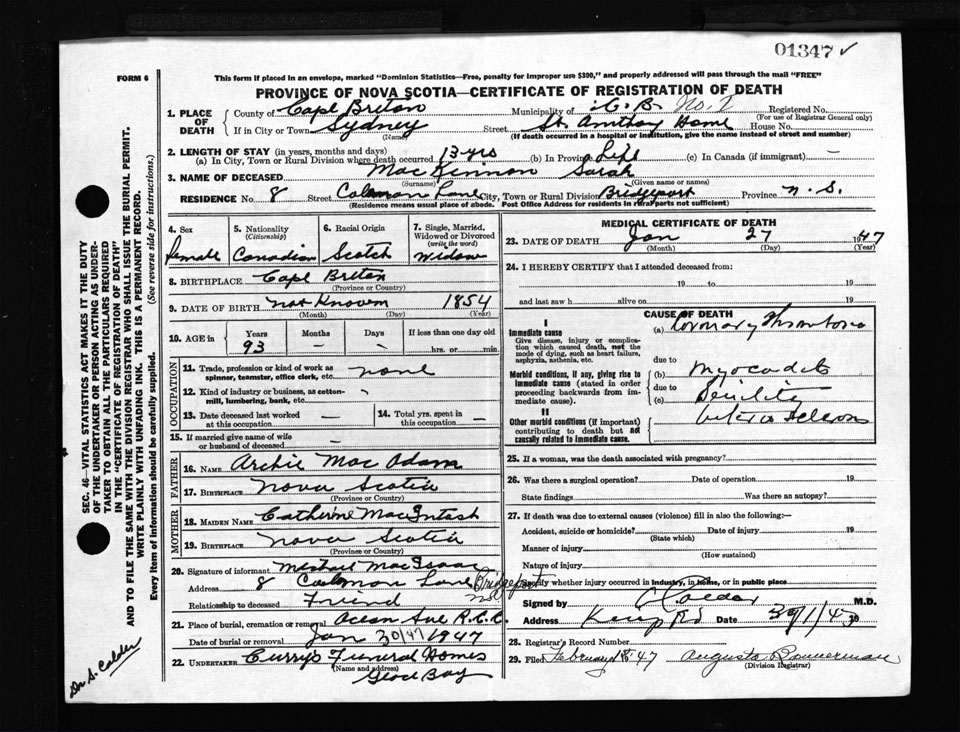 01347 ✓
FORM 6
This form if placed in an envelope, marked "Dominion Statistics—Free, penalty for improper use $300," and properly addressed will pass through the mail "FREE"
PROVINCE OF NOVA SCOTIA—CERTIFICATE OF REGISTRATION OF DEATH
SEC. 46—VITAL STATISTICS ACT MAKES IT THE DUTY
OF THE UNDERTAKER OR PERSON ACTING AS UNDER-
TAKER TO OBTAIN ALL THE PARTICULARS REQUIRED
IN THE "CERTIFICATE OF REGISTRATION OF DEATH"
AND TO FILE THE SAME WITH THE DIVISION REGISTRAR WHO SHALL ISSUE THE BURIAL PERMIT.
WRITE PLAINLY WITH UNFADING INK. THIS IS A PERMANENT RECORD.
Every item of information should be carefully supplied. (See reverse side for instructions.)
Dr S. Calder
1. PLACE OF DEATH
County of Cape Breton Municipality of C. B. No. Registered No.
(For use of Registrar General only)
If in City or Town Sydney Street St. Anthony Home House No.
(Name) (If death occurred in a hospital or institution, give the name instead of street and number)
2. LENGTH OF STAY (in years, months and days)
(a) In City, Town or Rural Division where death occurred 13 yrs (b) In Province Life (c) In Canada (if immigrant) —
3. NAME OF DECEASED MacKinnon Sarah
(Surname) (Given name or names)
RESIDENCE No. 8 Street Lane City, Town or Rural Division Bridgeport Province N. S.
(Residence means usual place of abode. Post Office Address for residents in rural parts not sufficient)
4. Sex Female
5. Nationality (Citizenship) Canadian
6. Racial Origin Scotch
7. Single, Married, Widowed or Divorced (write the word) Widow
8. BIRTHPLACE Cape Breton
(Province or Country)
9. DATE OF BIRTH not Known 1854
(Month) (Day) (Year)
10. AGE in Years Months Days If less than one day old
93 — — hrs. or min.
OCCUPATION
11. Trade, profession or kind of work as spinner, teamster, office clerk, etc. none
12. Kind of industry or business, as cotton-mill, lumbering, bank, etc.
13. Date deceased last worked at this occupation
14. Total yrs. spent in this occupation
15. If married give name of wife or husband of deceased —
FATHER
16. NAME Archie MacAdam
17. BIRTHPLACE Nova Scotia
(Province or Country)
MOTHER
18. MAIDEN NAME Catherine MacIntosh
19. BIRTHPLACE Nova Scotia
(Province or Country)
20. Signature of informant MacIsaac
Address 8 Lane Bridgeport
Relationship to deceased Friend
21. Place of burial, cremation or removal Ocean Ave R.C.C.
Date of burial or removal Jan 30/47 1947
22. UNDERTAKER Curry's Funeral Homes
(Name and address)
Glace Bay
MEDICAL CERTIFICATE OF DEATH
23. DATE OF DEATH Jan 27 1947
(Month) (Day) (Year)
24. I HEREBY CERTIFY that I attended deceased from:
19 to 19
and last saw h alive on 19
CAUSE OF DEATH
I
Immediate cause
Give disease, injury or complication which caused death, not the mode of dying, such as heart failure, asphyxia, asthenia, etc.
(a) Coronary Thrombosis
due to
Morbid conditions, if any, giving rise to immediate cause (stated in order proceeding backwards from immediate cause).
(b)
due to
(c) Senility
II
Other morbid conditions (if important) contributing to death but not causally related to immediate cause.
25. If a woman, was the death associated with pregnancy?
26. Was there a surgical operation? Date of operation 19
State findings Was there an autopsy?
27. If death was due to external causes (violence) fill in also the following:—
Accident, suicide or homicide? Date of injury 19
(State which)
Manner of injury
(How sustained)
Nature of injury
Specify whether injury occurred in industry, in home, or in public place
Signed by Calder M.D.
Address Date 30/1/47
28. Registrar's Record Number
29. Filed February 18 '47 Augusta Bannerman
(Division Registrar)